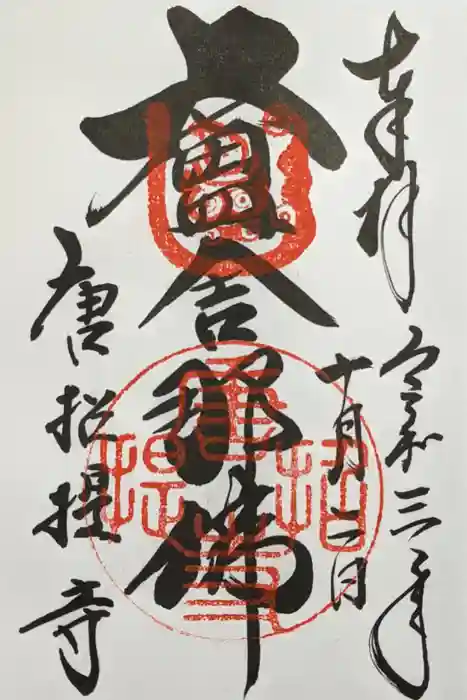 奉拝
令和三年
十月二日
盧舎那佛
唐招提寺
唐招提寺